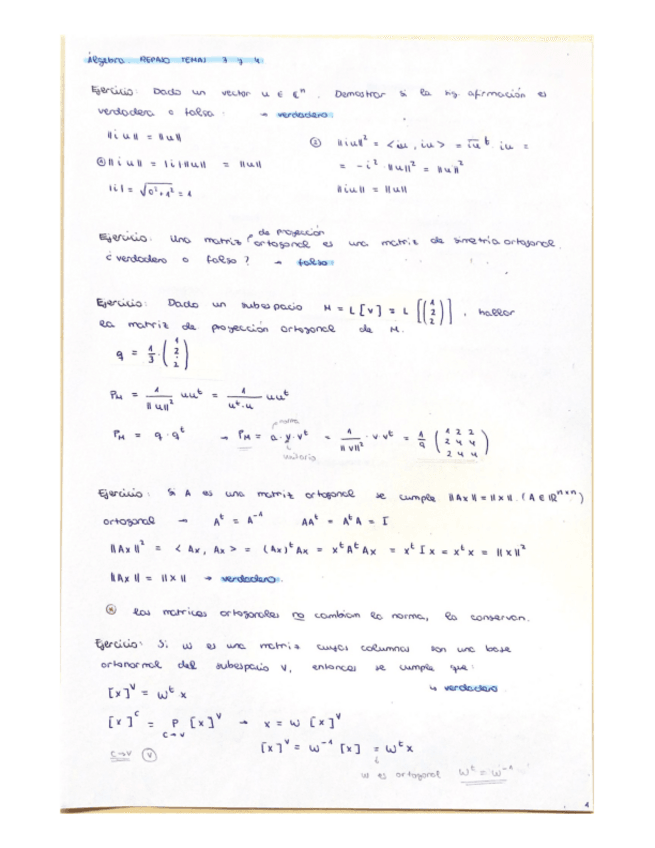 Álgebra. REPASO TEMAS 3 y 4.
Ejercicio: Dado un vector u ∈ ℂⁿ. Demostrar si la sig. afirmación es
verdadera o falsa. → verdadera
||iu|| = ||u||
① ||iu|| = |i| ||u|| = ||u||
|i| = √(0²+1²) = 1
② ||iu||² = <iu, iu> = \overline{iu}ᵗ · iu =
= -i² · ||u||² = ||u||²
||iu|| = ||u||
Ejercicio: Una matriz de proyección ortogonal es una matriz de simetría ortogonal.
¿verdadero o falso? → falso
Ejercicio: Dado un subespacio M = L[v] = L[(1 2 2)], hallar
la matriz de proyección ortogonal de M.
q = 1/3 · (1 2 2)
P_M = 1/||u||² uuᵗ = 1/(uᵗ·u) uuᵗ
P_M = q · qᵗ → P_M = a · v · vᵗ = 1/||v||² · v vᵗ = 1/9 (1 2 2 / 2 4 4 / 2 4 4)
norma
unitario
Ejercicio: Si A es una matriz ortogonal se cumple ||Ax|| = ||x||. (A ∈ ℝⁿˣⁿ)
ortogonal → Aᵗ = A⁻¹ AAᵗ = AᵗA = I
||Ax||² = <Ax, Ax> = (Ax)ᵗ Ax = xᵗAᵗAx = xᵗ I x = xᵗx = ||x||²
||Ax|| = ||x|| → verdadero
⊛ Las matrices ortogonales no cambian la norma, la conservan.
Ejercicio: Si w es una matriz cuyas columnas son una base
ortonormal del subespacio V, entonces se cumple que:
↳ verdadero
[x]ⱽ = wᵗx
[x]ᶜ = P [x]ⱽ → x = w [x]ⱽ
C→V
[x]ⱽ = w⁻¹ [x] = wᵗx
C→V Ⓥ
w es ortogonal wᵗ = w⁻¹
4